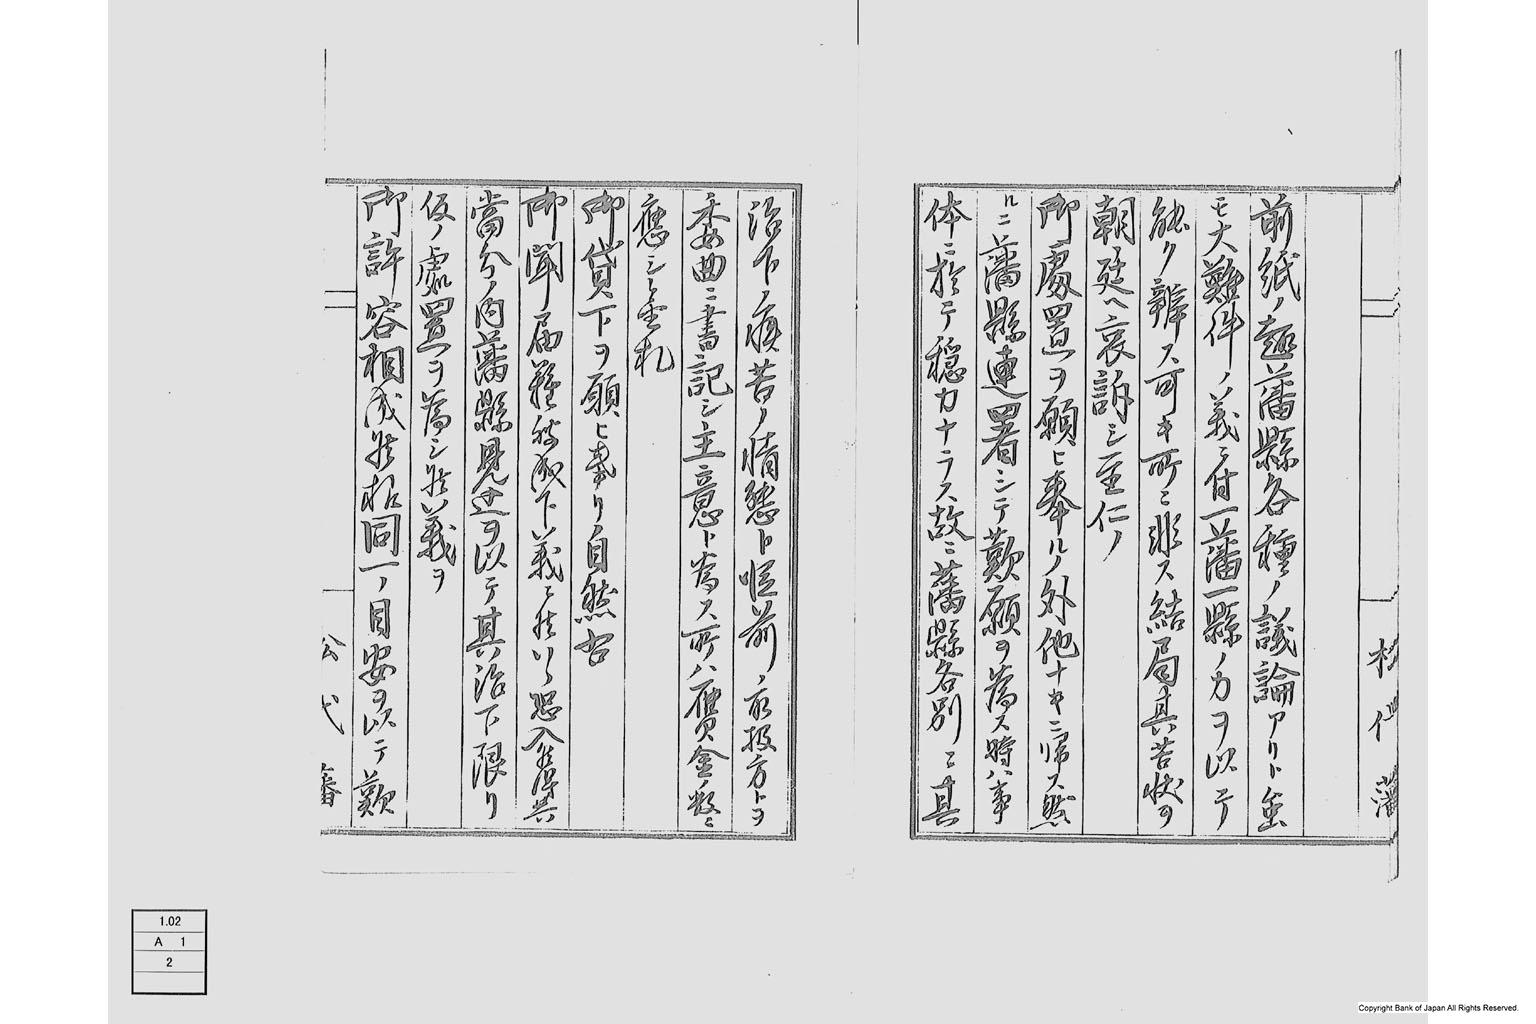 前紙ノ趣藩縣各種ノ議論アリト雖
モ大難件ノ義ニ付一藩一縣ノ力ヲ以テ
能ク辨ス可キ所ニ非ス結局其苦状ヲ
朝廷ヘ哀訴シ至仁ノ
御處置ヲ願ヒ奉ルノ外他ナキニ帰ス然
ルニ藩縣連署シテ歎願ヲ為ス時ハ事
体ニ於テ穏カナラス故ニ藩縣各別ニ其
松代藩
治下ノ疾苦ノ情態ト従前ノ取扱方トヲ
委曲ニ書記シ主意ト為ス所ハ贋金ノ数ニ
應シ金札
御貸下ヲ願ヒ奉リ自然右
御聞届難被成下義ニ候ハヽ恐入候得共
當分ノ内藩縣見込ヲ以テ其治下限リ
仮ノ處置ヲ為シ候義ヲ
御許容相成候様同一ノ目安ヲ以テ歎
松代藩
1.02
A 1
2
Copyright Bank of Japan All Rights Reserved.